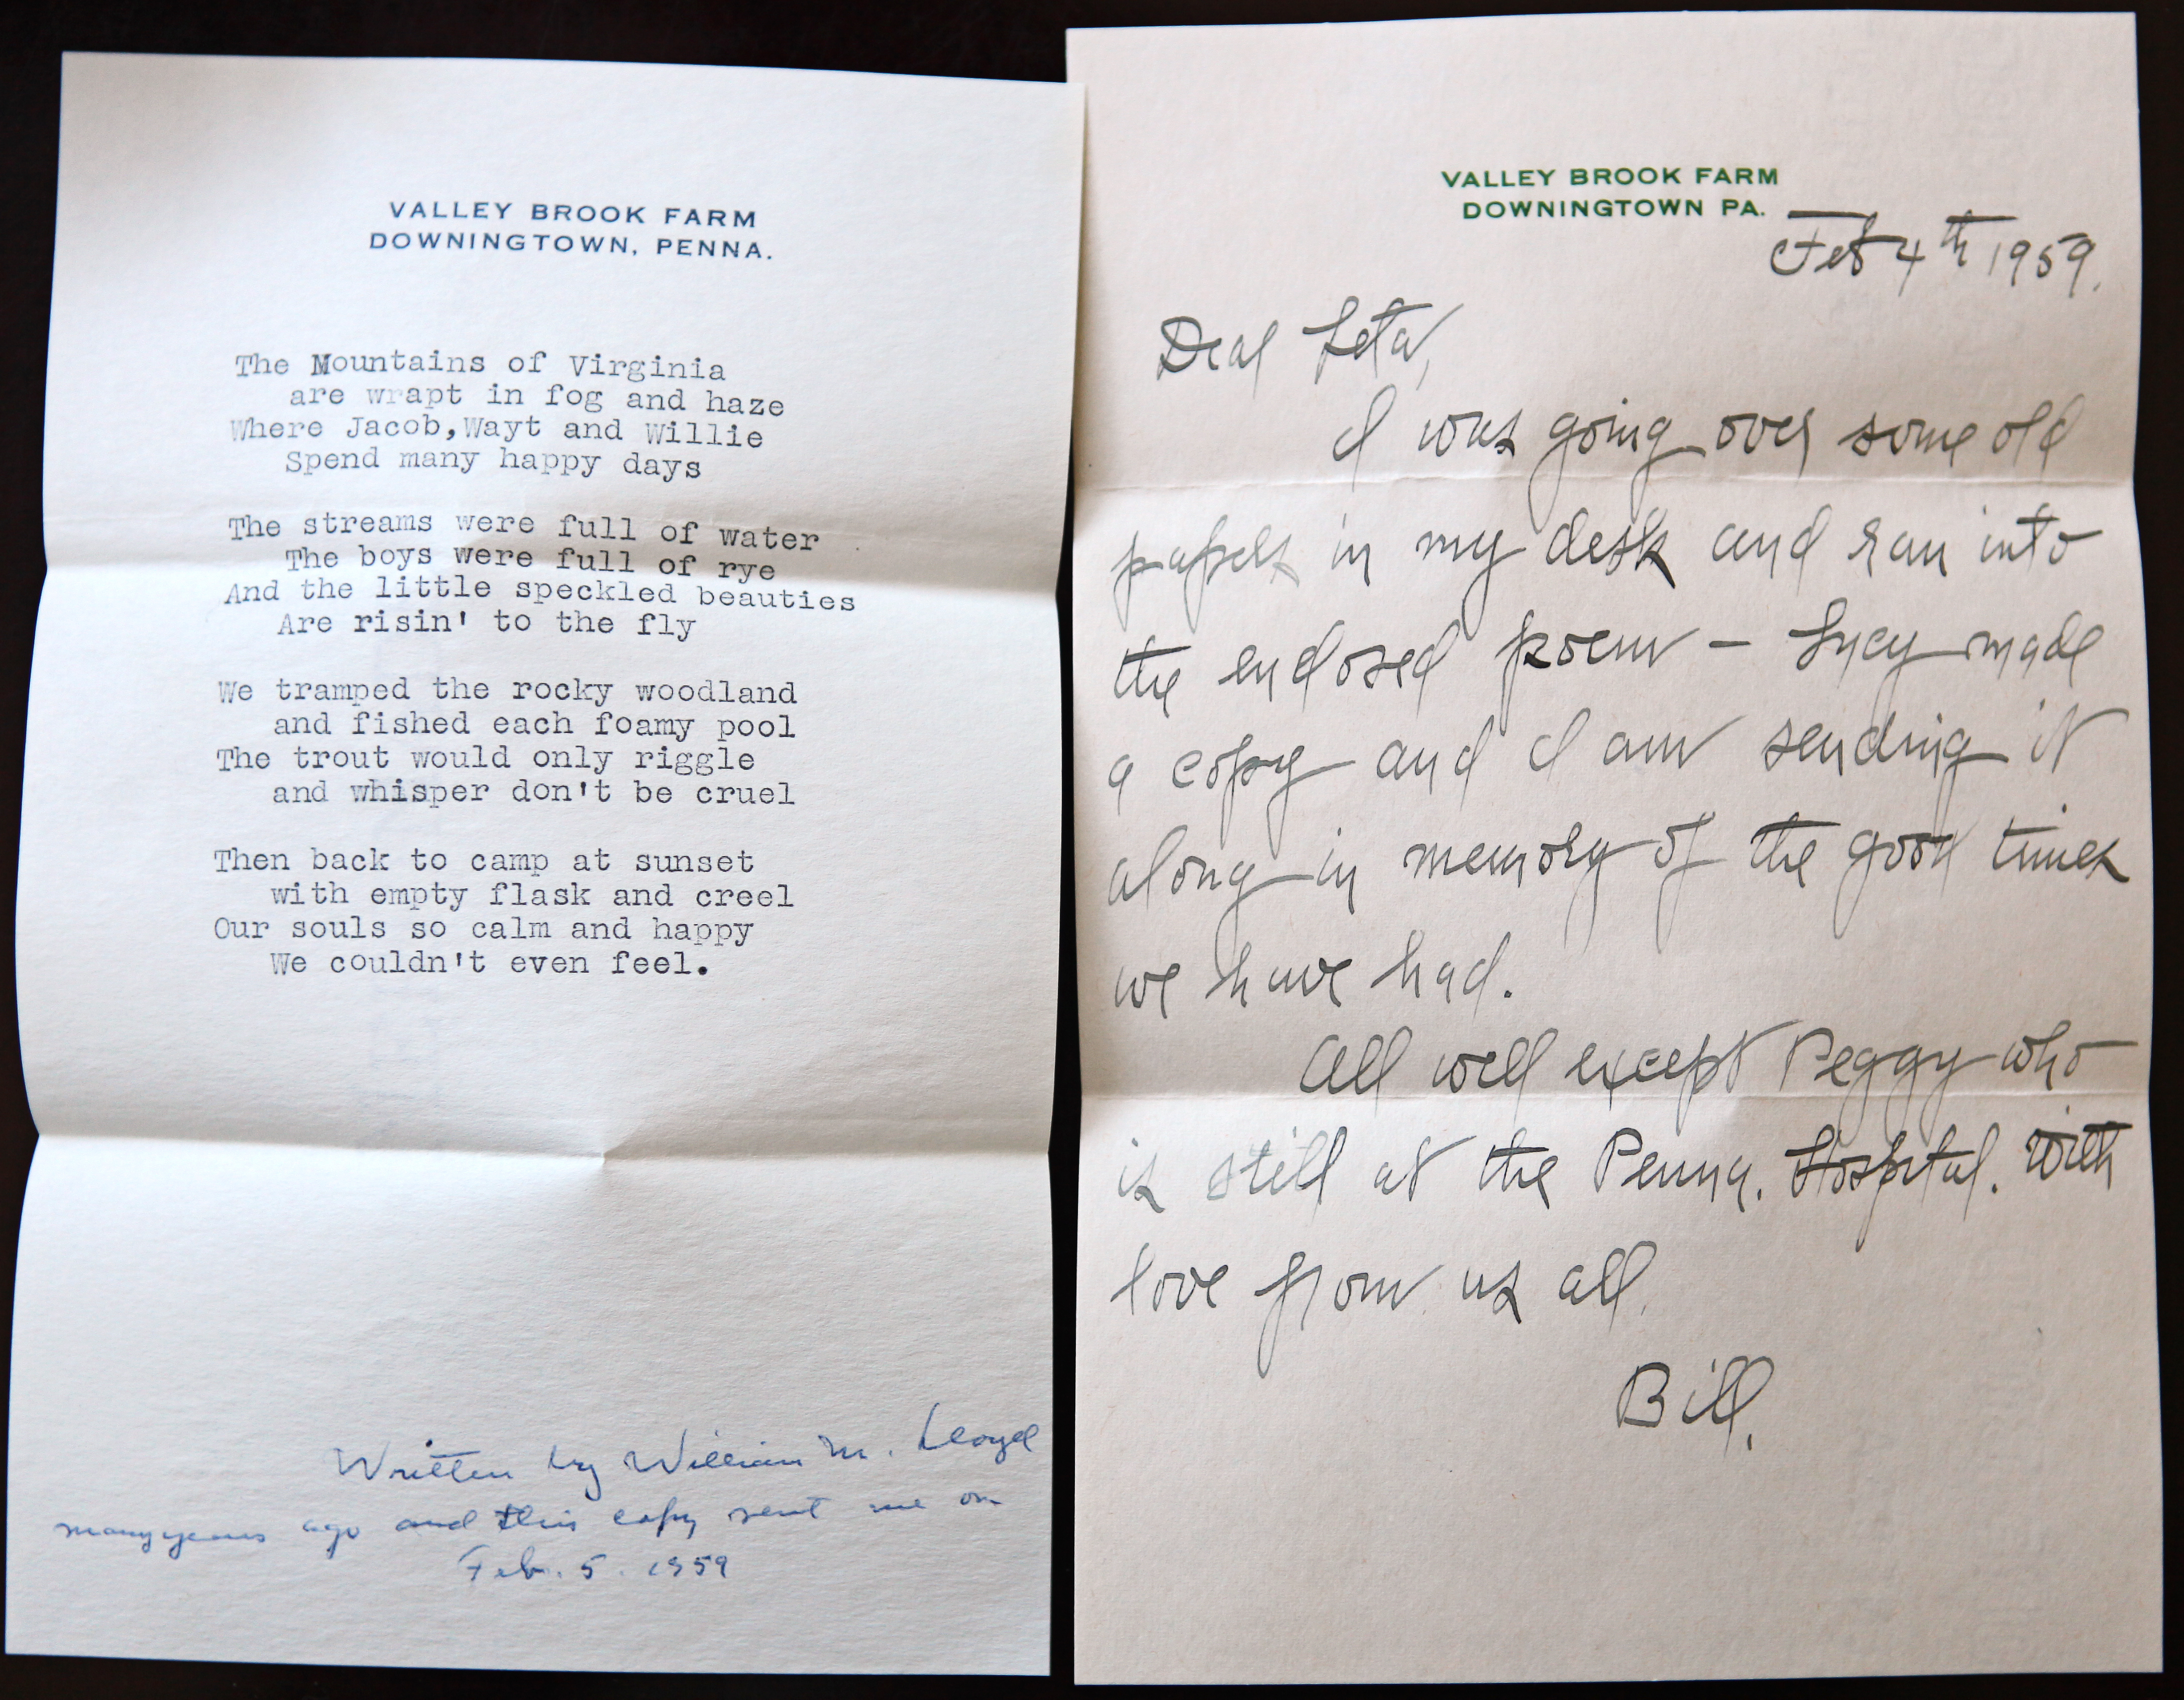 VALLEY BROOK FARM
DOWNINGTOWN, PENNA.
The Mountains of Virginia
are wrapt in fog and haze
Where Jacob,Wayt and Willie
Spend many happy days
The streams were full of water
The boys were full of rye
And the little speckled beauties
Are risin' to the fly
We tramped the rocky woodland
and fished each foamy pool
The trout would only riggle
and whisper don't be cruel
Then back to camp at sunset
with empty flask and creel
Our souls so calm and happy
We couldn't even feel.
Written by William M. Lloyd
many years ago and this copy sent me on
Feb. 5. 1959
VALLEY BROOK FARM
DOWNINGTOWN PA.
Feb 4th 1959.
Dear Leta,
I was going over some old
papers in my desk and ran into
the enclosed poem – Lucy made
a copy and I am sending it
along in memory of the good times
we have had.
All well except Peggy who
is still at the Penna. Hospital. With
love from us all.
Bill.